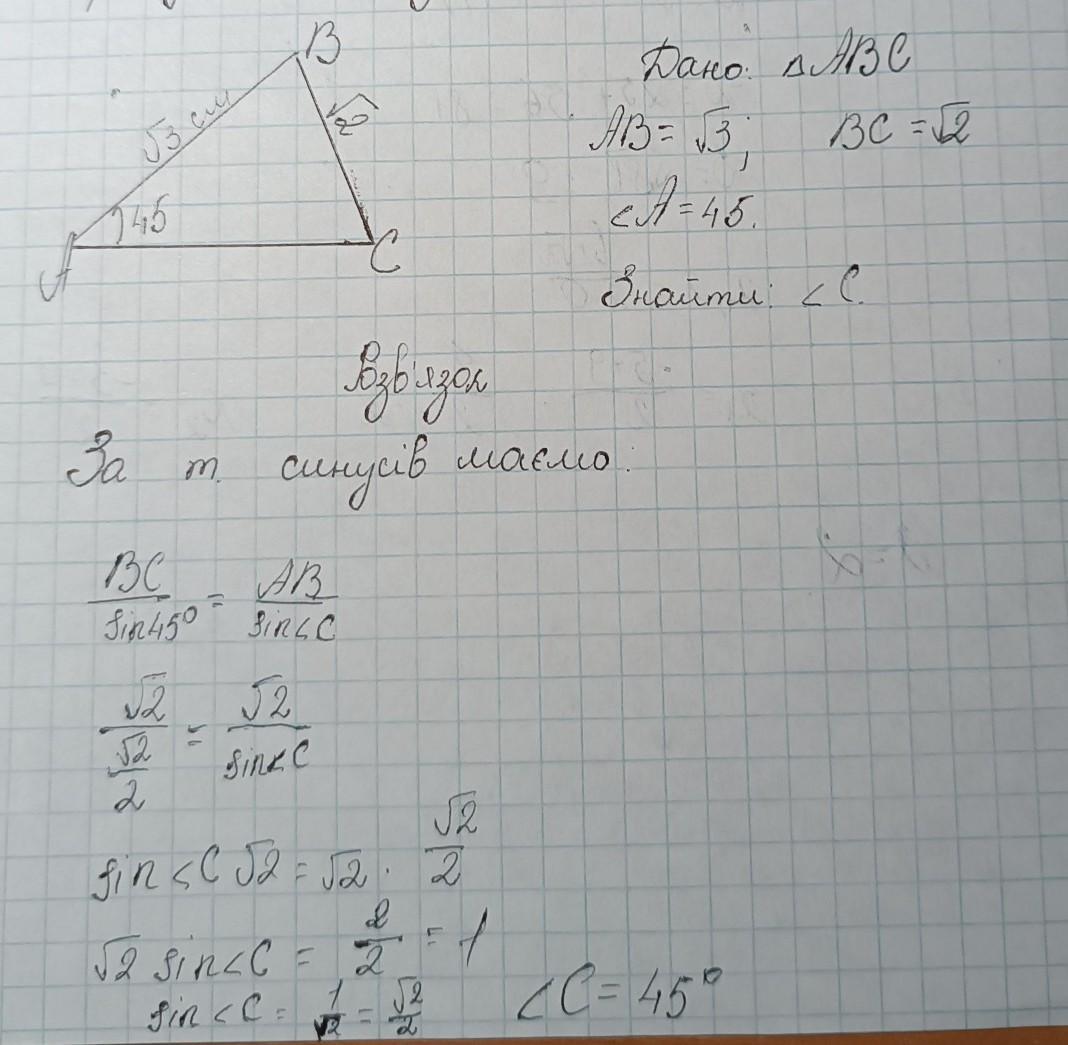 B
√3 см
√2
45
A
C
Дано: △ABC
AB = √3; BC = √2
∠A = 45.
Знайти: ∠C.
Розв'язок
За т. синусів маємо:
BC/sin45° = AB/sin∠C
√2/(√2/2) = √2/sin∠C
sin∠C √2 = √2 · √2/2
√2 sin∠C = 2/2 = 1
sin∠C = 1/√2 = √2/2 ∠C = 45°